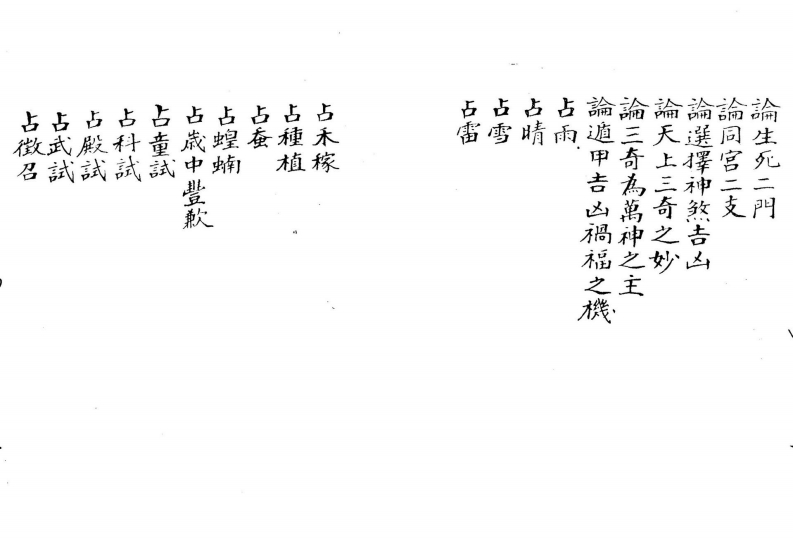 論生死二門
論同宮二支
論選擇神煞吉凶
論天上三奇之妙
論三奇為萬神之主
論遁甲吉凶禍福之機
占雨
占晴
占雪
占雷
占禾稼
占種植
占蚕
占蝗蝻
占歲中豐歉
占童試
占科試
占殿試
占武試
占徵召